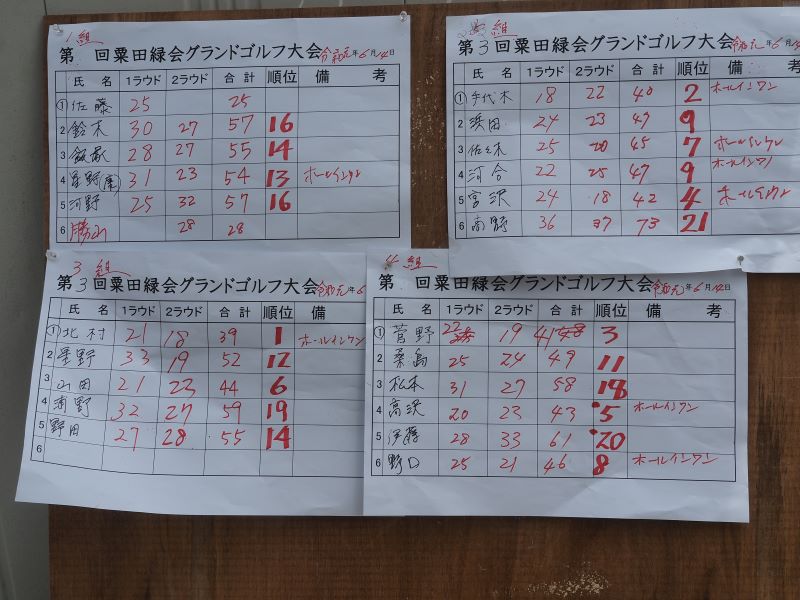 1組
第 回粟田緑会グランドゴルフ大会 令和元年6月14日
氏 名 1ラウド 2ラウド 合 計 順位 備 考
① 佐藤 25 25
2 鈴木 30 27 57 16
3 飯塚 28 27 55 14
4 星野 31 23 54 13 ホールインワン
5 河野 25 32 57 16
6 勝山 28 28
2組
第3回粟田緑会グランドゴルフ大会 令和元年6月14日
氏 名 1ラウド 2ラウド 合 計 順位 備 考
① 千代木 18 22 40 2 ホールインワン
2 浜田 24 23 47 9
3 佐々木 25 20 45 7 ホールインワン
4 河合 22 25 47 9 ホールインワン
5 宮沢 24 18 42 4 ホールインワン
6 南野 36 37 73 21
3組
第3回粟田緑会グランドゴルフ大会 令和元年6
氏 名 1ラウド 2ラウド 合 計 順位 備
① 北村 21 18 39 1 ホールインワン
2 星野 33 19 52 12
3 山田 21 23 44 6
4 浦野 32 27 59 19
5 野田 27 28 55 14
6
4組
第 回粟田緑会グランドゴルフ大会 令和元年6月14日
氏 名 1ラウド 2ラウド 合 計 順位 備 考
① 菅野 22 19 41 3
2 桑島 25 24 49 11
3 松本 31 27 58 18
4 高沢 20 23 43 5 ホールインワン
5 伊藤 28 33 61 20
6 野口 25 21 46 8 ホールインワン